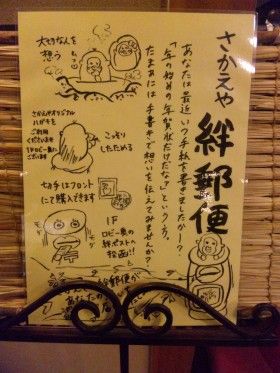 さかえや
絆郵便
あなたは最近いつ手紙を書きましたか？
「年の始めの年賀状だけだな」という方、
たまぁには手書きで想いを伝えてみませんか？
大切な人を
想う
さかえやオリジナル
ハガキを
ご利用
くださいませ
1Fロビー奥に
ございます
こっそり
したためる
切手はフロント
にて購入できます
1F
ロビー奥の
絆ポストへ
投函!!
モグ
絆郵便が
あなたの